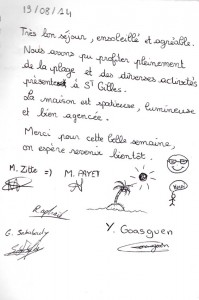 19/08/14
Très bon séjour, ensoleillé et agréable.
Nous avons pu profiter pleinement
de la plage et des diverses activités
présentent à St Gilles.
La maison est spatieuse, lumineuse
et bien agencée.
Merci pour cette belle semaine,
on espère revenir bientôt.
M. Zitte => M. PAYET
Raphaël
G. 
Y. Goasguen